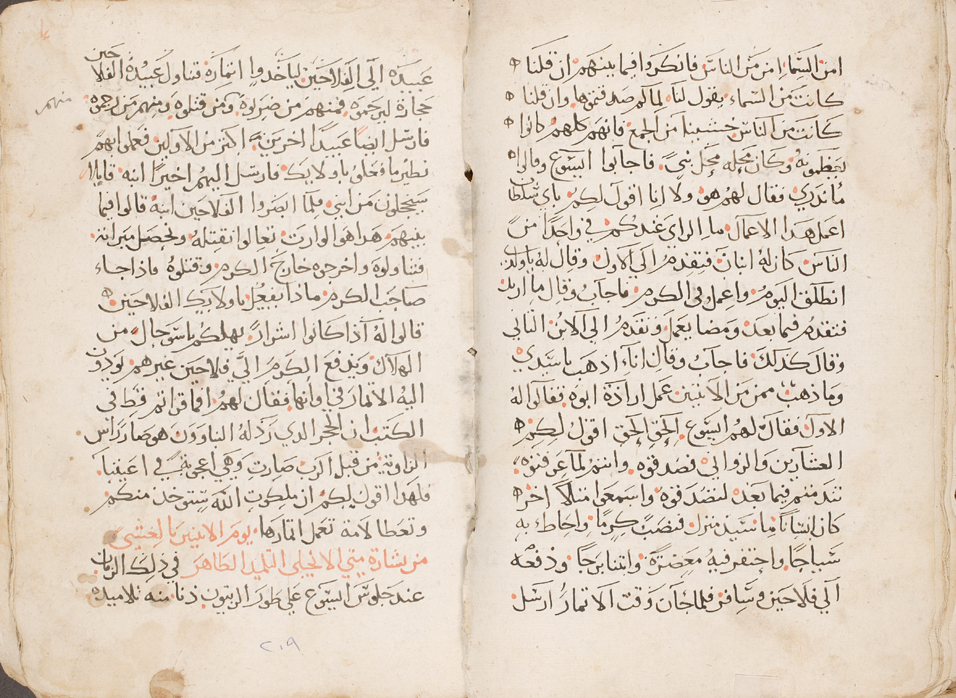 امن السماء ام من الناس فانكروا فيما بينهم ان قلنا
كانت من السماء يقول لنا لما لم صدقتموها وان قلنا
كانت من الناس خشينا من الجمع فانهم كلهم كانوا
وكان محله محل نبي فاجابوا اليسوع وقالوا
ما ندري فقال لهم هو ولا انا اقول لكم باي سلطان
اعمل هدا الاعمال ما الراي عندكم في واحدا من
الناس كان له ابنان فتقدم الي الاول وقال له ياولدي
انطلق اليوم واعمل في الكرم فاجاب وقال ما اريد
فتقدم فيما بعد ومضا يعمل وتقدم الي الابن التاني
وقال كدلك فاجاب وقال انا اذهب ياسيدي
وما دهب فمن من الاتنين عمل ارادة ابوه فقالوا له
الاول فقال لهم اليسوع الحق الحق اقول لكم
العشارين والزواني فصدقوه وانتم لما عرفتوه
تندمتم فيما بعد لتصدقوه واسمعوا متلا اخر
كان انسانا ما سيد منزل فنصب كرما واحاط به
سياجا واحتفر فيه معصرة وابتنا برجا ودفعه
الي فلاحين وسافر فلما حان وقت الاتمار ارسل
عبيده الي الفلاحين لياخدوا اتماره فتناول عبيده الفلاحين
حجارة ليرجموه فمنهم من ضربوه ومن قتلوه ومنهم من رجموه
منهم
فارسل ايضا عبيدا اخرين اكتر من الاولين فعملوا بهم
نظير ما فعلوا باولايك فارسل اليهم اخيرا ابنه قايلا
سيخجلون من ابني فلما ابصروا الفلاحين ابنه قالوا فيما
بينهم هدا هو الوارت تعالوا نقتله ونحصل ميراته
فتناولوه واخرجوه خارج الكرم وقتلوه فادا جاء
صاحب الكرم ماذا يفعل باولايك الفلاحين
قالوا له اذا كانوا اشرار يهلكهم باسو حال من
الهلاك ويدفع الكرم الي فلاحين غيرهم يودون
اليه الاتمار في اوانها فقال لهم افما قراتم قط في
الكتب ان الحجر الدي ردله البناوون هو صار راس
الزاوية من قبل الرب صارت وهي اعجوبة في اعيننا
فلهدا اقول لكم ان ملكوت الله ستوخد منكم
وتعطا لامة تعمل اتمارها يوم الاتنين بالعشي
من بشارة متي الانجيلي التلميد الطاهر في دلك الزمان
عند جلوس اليسوع علي طور الزيتون دنا منه تلاميده
٢٠٩